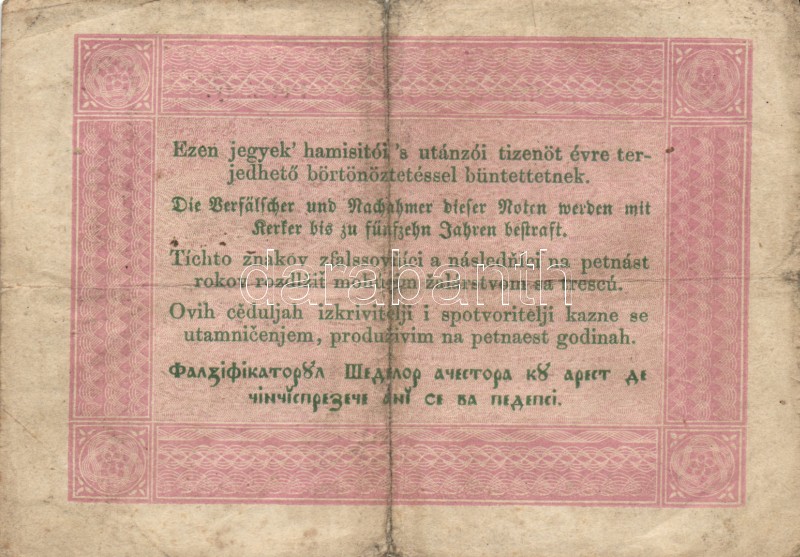 Ezen jegyek' hamisitói 's utánzói tizenöt évre ter-
jedhető börtönöztetéssel büntettetnek.
Die Verfälscher und Nachahmer dieser Noten werden mit
Kerker bis zu fünfzehn Jahren bestraft.
Tíchto žnakov zfalssovňíci a následňíci na petnást
rokov rozdlžiť mohúcim žalárstvom sa trescú.
Ovih cěduljah izkrivitelji i spotvoritělji kazne se
utamničenjem, produživim na petnaest godinah.
Фалзіфікаторꙋл Шеделор ачестора кꙋ арест де
чінчīспрезече анī се ва педепсі.
darabanth